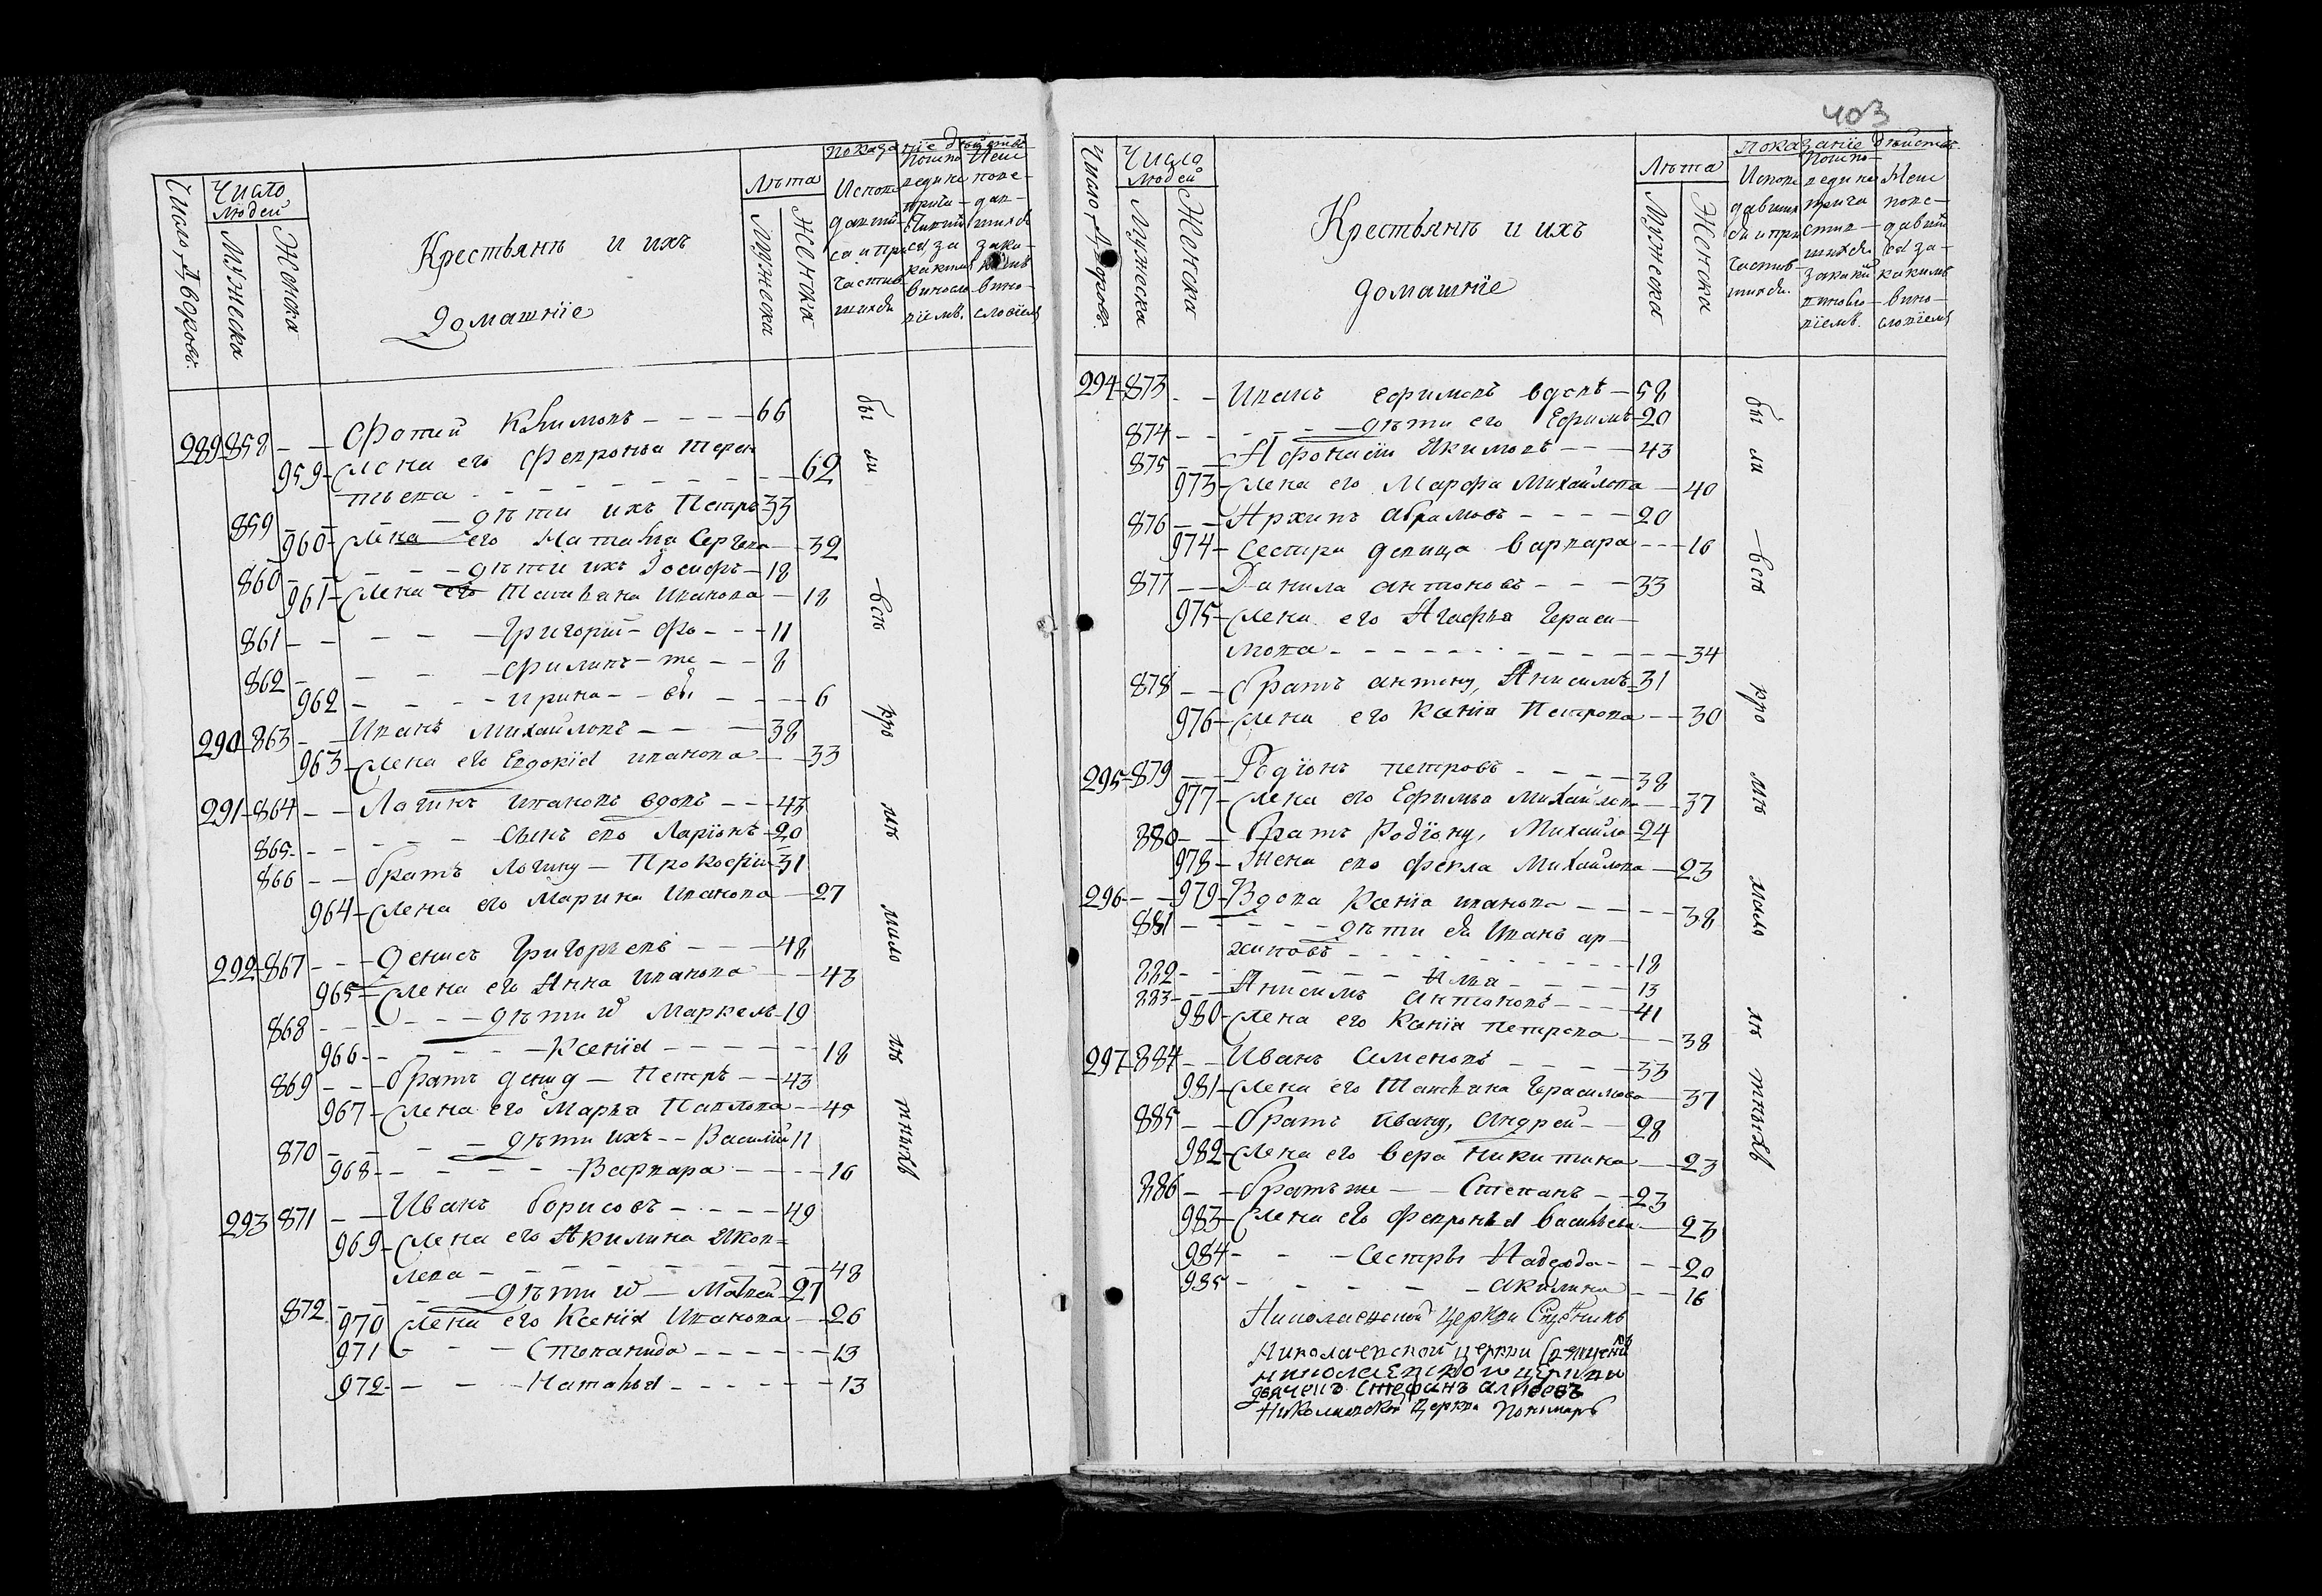 Число Дворовъ.
Число людей
Мужеска
Женска
Крестьянѣ и ихъ
Домашнїе
Лѣта
Мужеска
Женска
Показанїе дѣйства
289 858 — — Фотий Климовъ — — — 66
959 — Жена его Февронья Терен
тьева — — — — 62
859 — — — дѣти ихъ Петръ 33
960 — Жена его Наталья Сергѣва — 32
860 — — — дѣти ихъ Iосифъ — 18
961 — Жена его Татьяна Иванова — 18
861 — — — — — Григорий — — — 11
862 — — — — Филипъ — — — 8
962 — — — — Ирина — — — — 6
290 — 863 — — Иванъ Михайловъ — — — 38
963 — Жена его Евдокїя иванова — — 33
291 — 864 — — Логинъ Ивановъ вдовъ — — — 43
865 — — — — — Сынъ ево Ларїонъ — 20
866 — — братъ Логину — Прокофїи — 31
964 — Жена его Марина Иванова — 27
292 — 867 — — Денисъ Григорьевъ — — — 48
965 — Жена его Анна иванова — — 43
868 — — — — — дѣти ѿ Маркелъ — 19
966 — — — — Ксенїя — — — — 18
869 — — — братъ Денису — Петръ — — 43
967 — Жена его Марья Павлова — — 45
870 — — — — дѣти ихъ — — Василїй 11
968 — — — — — Варвара — — — — 16
293 871 — — Иванъ борисовъ — — — — 49
969 — Жена его Акилина Яков=
лева — — — — — — — 48
872 — — — дѣти ѿ — Матвей — 27
970 Жена его Ксенїя Иванова — 26
971 — — — Степанида — — — — — 13
972 — — — Наталья — — — — — 13
бы
ли
всѣ
кро
мѣ
мало
лѣ
тныхъ
403
Число Дворовъ.
Число людей
Мужеска
Женска
Крестьянѣ и ихъ
домашнїе
Лѣта
Мужеска
Женска
Показанїе дѣйства
294 — 873 — — Иванъ ефимовъ вдовъ — 58
874 — — — — — дѣти его Ефимъ — 20
875 — — Афонасїи Якимовъ — — — 43
973 — Жена его Марфа Михайлова — 40
876 — — Архипъ абрамовъ — — — — 20
974 — сестра девица варвара — — — 16
877 — — Данила антоновъ — — — 33
975 — Жена его Агафья Гераси —
мова — — — — — — — — 34
878 — — братъ антону, Анисимъ — 31
976 — Жена его Ксенїя Петрова — — 30
295 — 879 — — Родїонъ петровъ — — — — 38
977 — Жена его Ефимья Михайлова — 37
880 — — братъ Родїону, Михайла — 24
978 — Жена ево Фекла Михайлова — 23
296 — — 979 — Вдова Ксенїя иванова — — — — 38
881 — — — — — дѣти ея Иванъ ар —
хиповъ — — — — — — — 18
882 — — — — — — Илья — — — — 13
883 — — Анисимъ Антоновъ — — — 41
980 — Жена его Ксенїя петрова — — 38
297 — 884 — — Иванъ Семеновъ — — — — 33
981 — Жена его Татьяна Герасимова — 37
885 — — братъ ивану, Андрей — — 28
982 — Жена его вера никитина — 23
886 — — братъ же — — Степанъ — — 23
983 — Жена его Февронья васильева — 23
984 — — — Сестры Надежда — — — 20
985 — — — — — — акилина — — 16
бы
ли
всѣ
кро
мѣ
мало
лѣ
тныхъ
Николаевской церкви
Николаевской церкви Священникъ
николаевской церкви
дьячекъ Стефанъ алѣѣевъ
Николаевской церкви пономарь